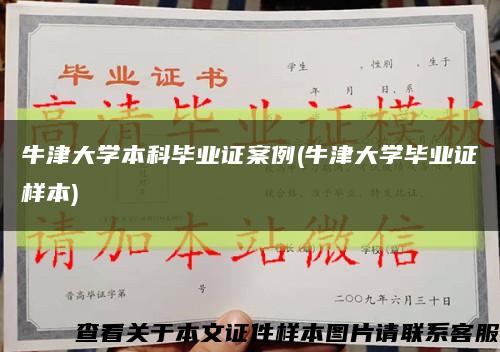 毕业证书
学生 ,性别 ,生于
年 月 日,系
高清毕业证模板
牛津大学本科毕业证案例(牛津大学毕业证
样本)
请加本站微信
学校(章)
晋高毕证字第 号
二〇〇九年六月三十日
查看关于本文证件样本图片请联系客服